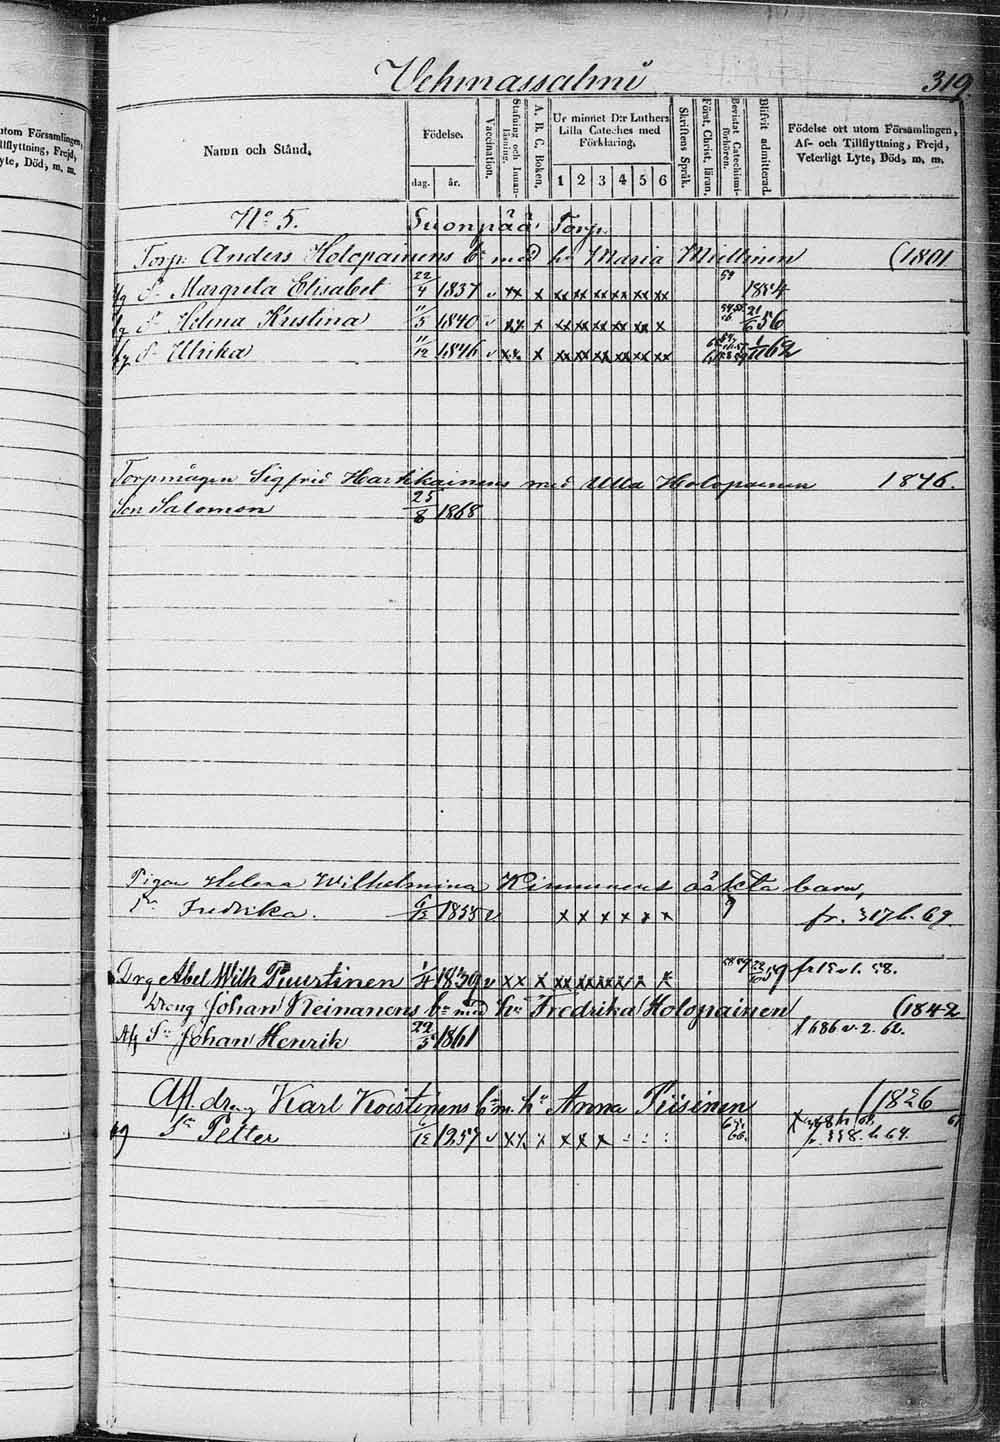 Vehmassalmi 319.
utom Församlingen,
Namn och Stånd.
Födelse.
dag. år.
Vaccination.
Stafning och Innanläsning.
A. B. C. Boken.
Ur minnet D:r Luthers
Lilla Cateches med
Förklaring.
1 2 3 4 5 6
Skriftens Språk.
Förstr. Christ. läran.
Bevistat Catechismiförhören.
Blifvit admitterad.
Födelse ort utom Församlingen,
Af- och Tillflyttning, Frejd,
Veterligt Lyte, Död, m. m.
No 5. Suonpää Torp.
Torp: Anders Holopainens bn med hu Maria Miettinen (1801
Dr Margreta Elisabet 22/4 1837 v xx x xx xx xx xx xx xx 59 1854
Dr Helena Kristina 11/5 1840 v xx x xx xx xx xx xx x 21/6 56
Dr Ulrika 11/12 1846 v xx x xx xx xx xx xx xx 62
Torpmågen Sigfrid Hartikainens med Ulla Holopainen 1846.
Son Salomon 25/8 1868
Pigan Helena Wilhelmina Kinnunens oäkta barn,
Dr Fredrika. 6/12 1855 v x x x x x x fr. 317 b. 69.
Drg Abel Wilh Puurtinen 1/4 1839 v xx x xx xx xx xx x x 58 59 59 fr 58.
Dreng Johan Keinanens bn med hu Fredrika Holopainen (1842
Sn Johan Henrik 22/5 1861 686 v. 2. 62.
Afl. dreng Karl Koistinens bn m. hu Anna Piisinen (1826
Sn Petter 6/12 1857 v xx x x x x : : : fr. 358. b. 64.